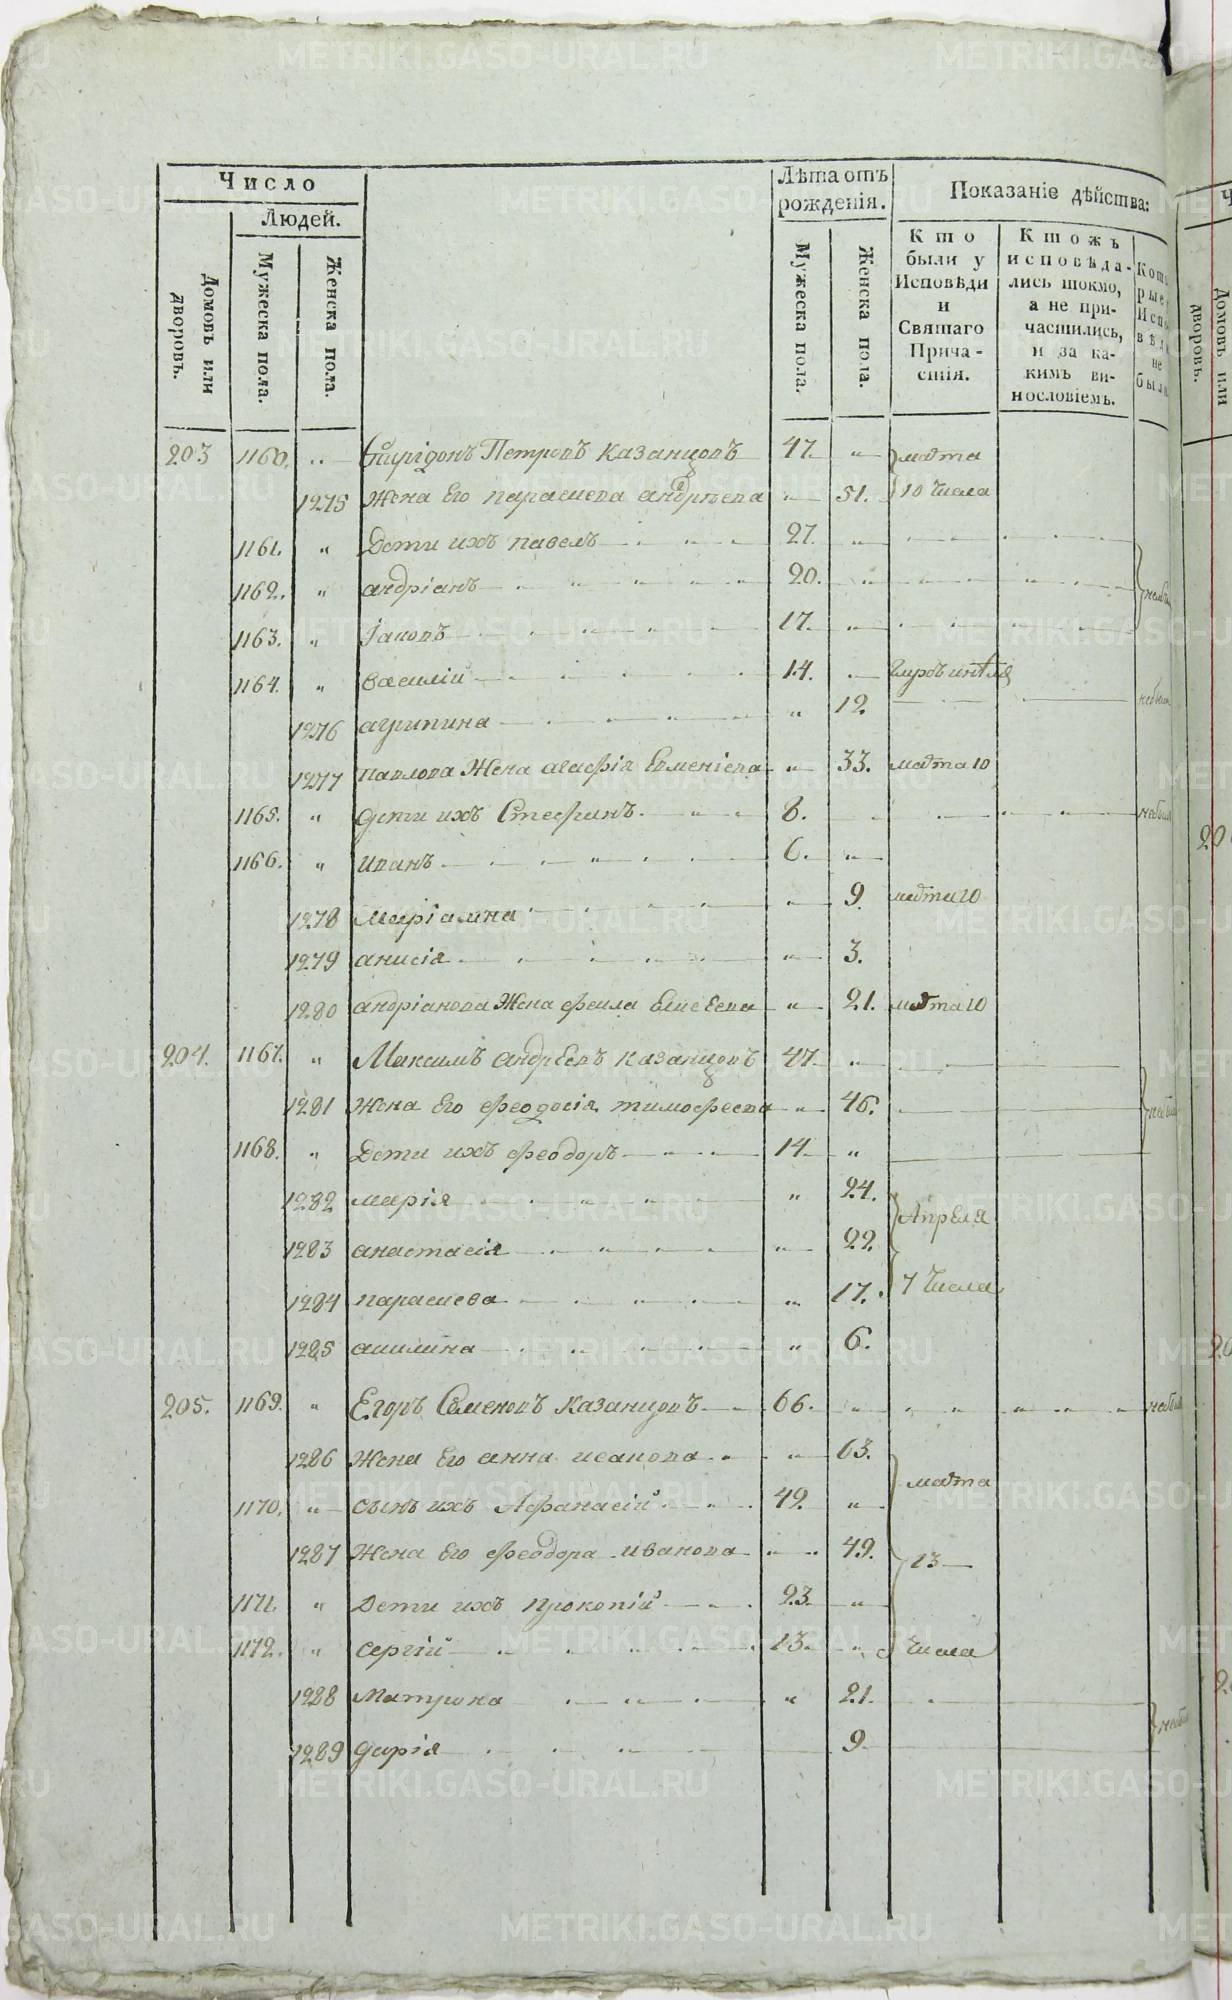 Число
Людей.
Домовъ или дворовъ.
Мужеска пола.
Женска пола.
Лѣта отъ рожденія.
Мужеска пола.
Женска пола.
Показаніе дѣйства:
Кто были у Исповѣди и Святаго Прича-стія.
Ктожъ исповѣда-лись токмо, а не при-частились, и за ка-кимъ ви-нословіемъ.
203 1160. Спиридонъ Петровъ Казанцовъ 47. марта
1275 Жена Его параскева андрѣева 51. 10 числа
1161. Дети ихъ павелъ 27.
1162. андріанъ 20.
1163. Іаковъ 17.
1164. василій 14.
1276 агрипина 12.
1277 павлова Жена агафія Евменіева 33. марта 10
1165. дети ихъ Стефанъ 8.
1166. иванъ 6.
1278 маріамна 9. марта 10
1279 анисія 3.
1280 андріанова Жена фекла Елисеева 21. марта 10
204. 1167. Максимъ андрЕевъ казанцовъ 47.
1281 Жена Его феодосія тимофеева 46.
1168. Дети ихъ феодоръ 14.
1282 марія 24. Апреля
1283 анастасія 22.
1284 параскева 17. 7 числа
1285 акилина 6.
205. 1169. Егоръ Семеновъ Казанцовъ 66.
1286 Жена Его анна исакова 63.
1170. сынъ ихъ Афанасій 49. марта
1287 Жена Его феодора иванова 49. 13
1171. Дети ихъ прокопій 23.
1172. сергій 13. числа
1288 Матрона 21.
1289 дарія 9
METRIKI.GASO-URAL.RU